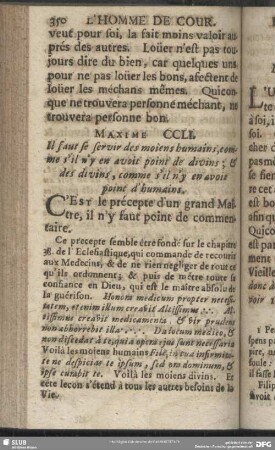 350 L'HOMME DE COUR.
veut pour soi, la fait moins valoir au-
prés des autres. Loüer n'est pas tou-
jours dire du bien, car quelques uns
pour ne pas loüer les bons, afectent de
loüer les méchans mêmes. Quicon-
que ne trouvera personne méchant, ne
trouvera personne bon.
MAXIME CCLI.
Il faut se servir des moiens humains, com-
me s'il n'y en avoit point de divins; &
des divins, comme s'il n'y en avoit
point d'humains.
C'EST le précepte d'un grand Maî-
tre, il n'y faut point de commen-
taire.
Ce precepte semble être fondé sur le chapitre
38. de l'Eclesiastique, qui commande de recourir
aux Medecins, & de ne rien negliger de tout ce
qu'ils ordonnent; & puis de metre toute sa
confiance en Dieu, qui est le maître absolu de
la guérison. Honora medicum propter necessi-
tatem, etenim illum creavit Altissimus. Al-
tissimus creavit medicamenta, & vir prudens
non abhorrebit illa. Da locum medico, &
non discedat à te, quia opera ejus sunt necessaria
Voilà les moiens humains Fili, in tua infirmita-
te ne despicias te ipsum, sed ora dominum, &
ipse curabit te. Voilà les moiens divins. Et
cete leçon s'étend à tous les autres besoins de la
Vie.
SLUB
DFG